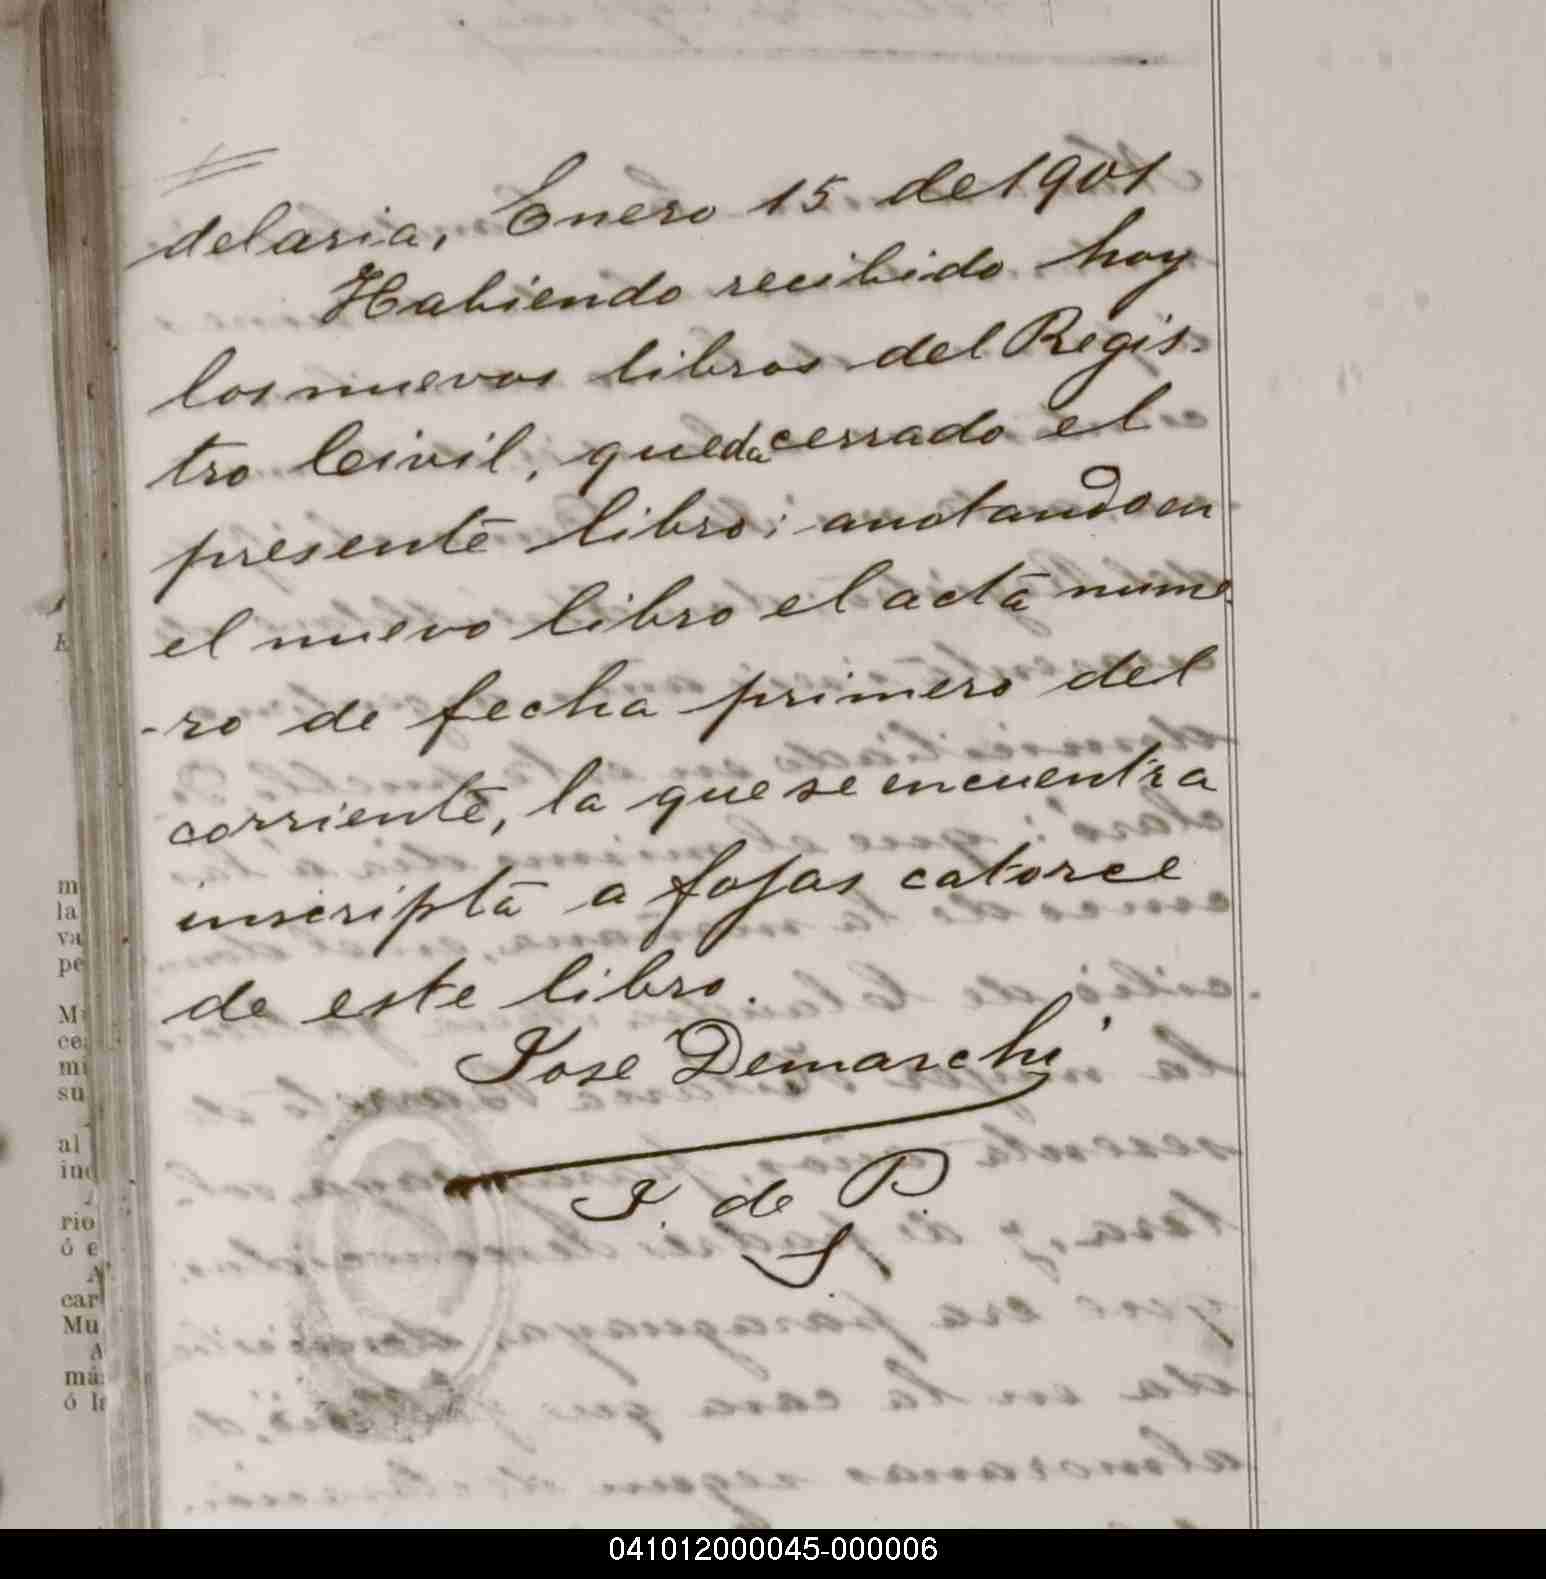 delaria, Enero 15 de 1901
Habiendo recibido hoy
los nuevos libros del Regis-
tro Civil, queda cerrado el
presente libro; anotando en
el nuevo libro el acta nume
-ro de fecha primero del
corriente, la que se encuentra
inscripta a fojas catorce
de este libro.
Jose Demarchi
J. de P.
S.
m
la
va
pe
M
ce
mi
su
al
ind
rio
ó e
A
car
Mu
A
má
ó la
041012000045-000006